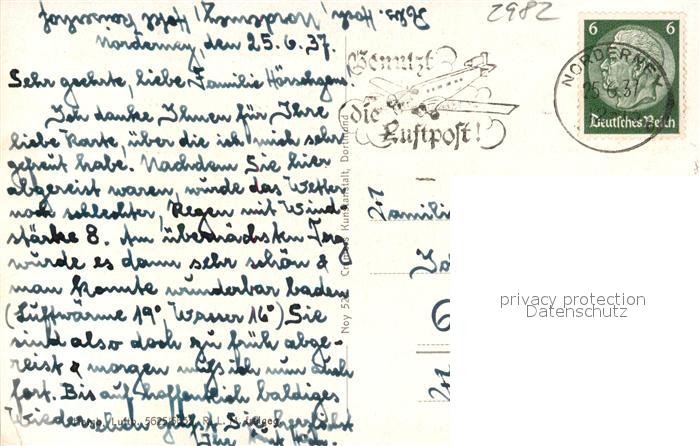 2982
Norderney, den 25.6.37.
Sehr geehrte, liebe Familie
Ich danke Ihnen für Ihre
liebe Karte, über die ich mich sehr
gefreut habe. Nachdem Sie hier
abgereist waren, wurde das Wetter
noch schlechter, Regen mit Wind
stärke 8. Am übernächsten Tag
wurde es dann sehr schön &
man konnte wunderbar baden
(Luftwärme 19°, Wasser 16°) Sie
sind also doch zu früh abge-
reist & morgen muß ich nun auch
fort. Bis auf hoffentlich baldiges
Wiedersehen grüßt Sie herzlichst
Ihr
Benutzt
die
Luftpost!
NORDERNEY
25.6.37
6 6
Deutsches Reich
Familie
Cramers Kunstanstalt, Dortmund
Noy 52
privacy protection
Datenschutz